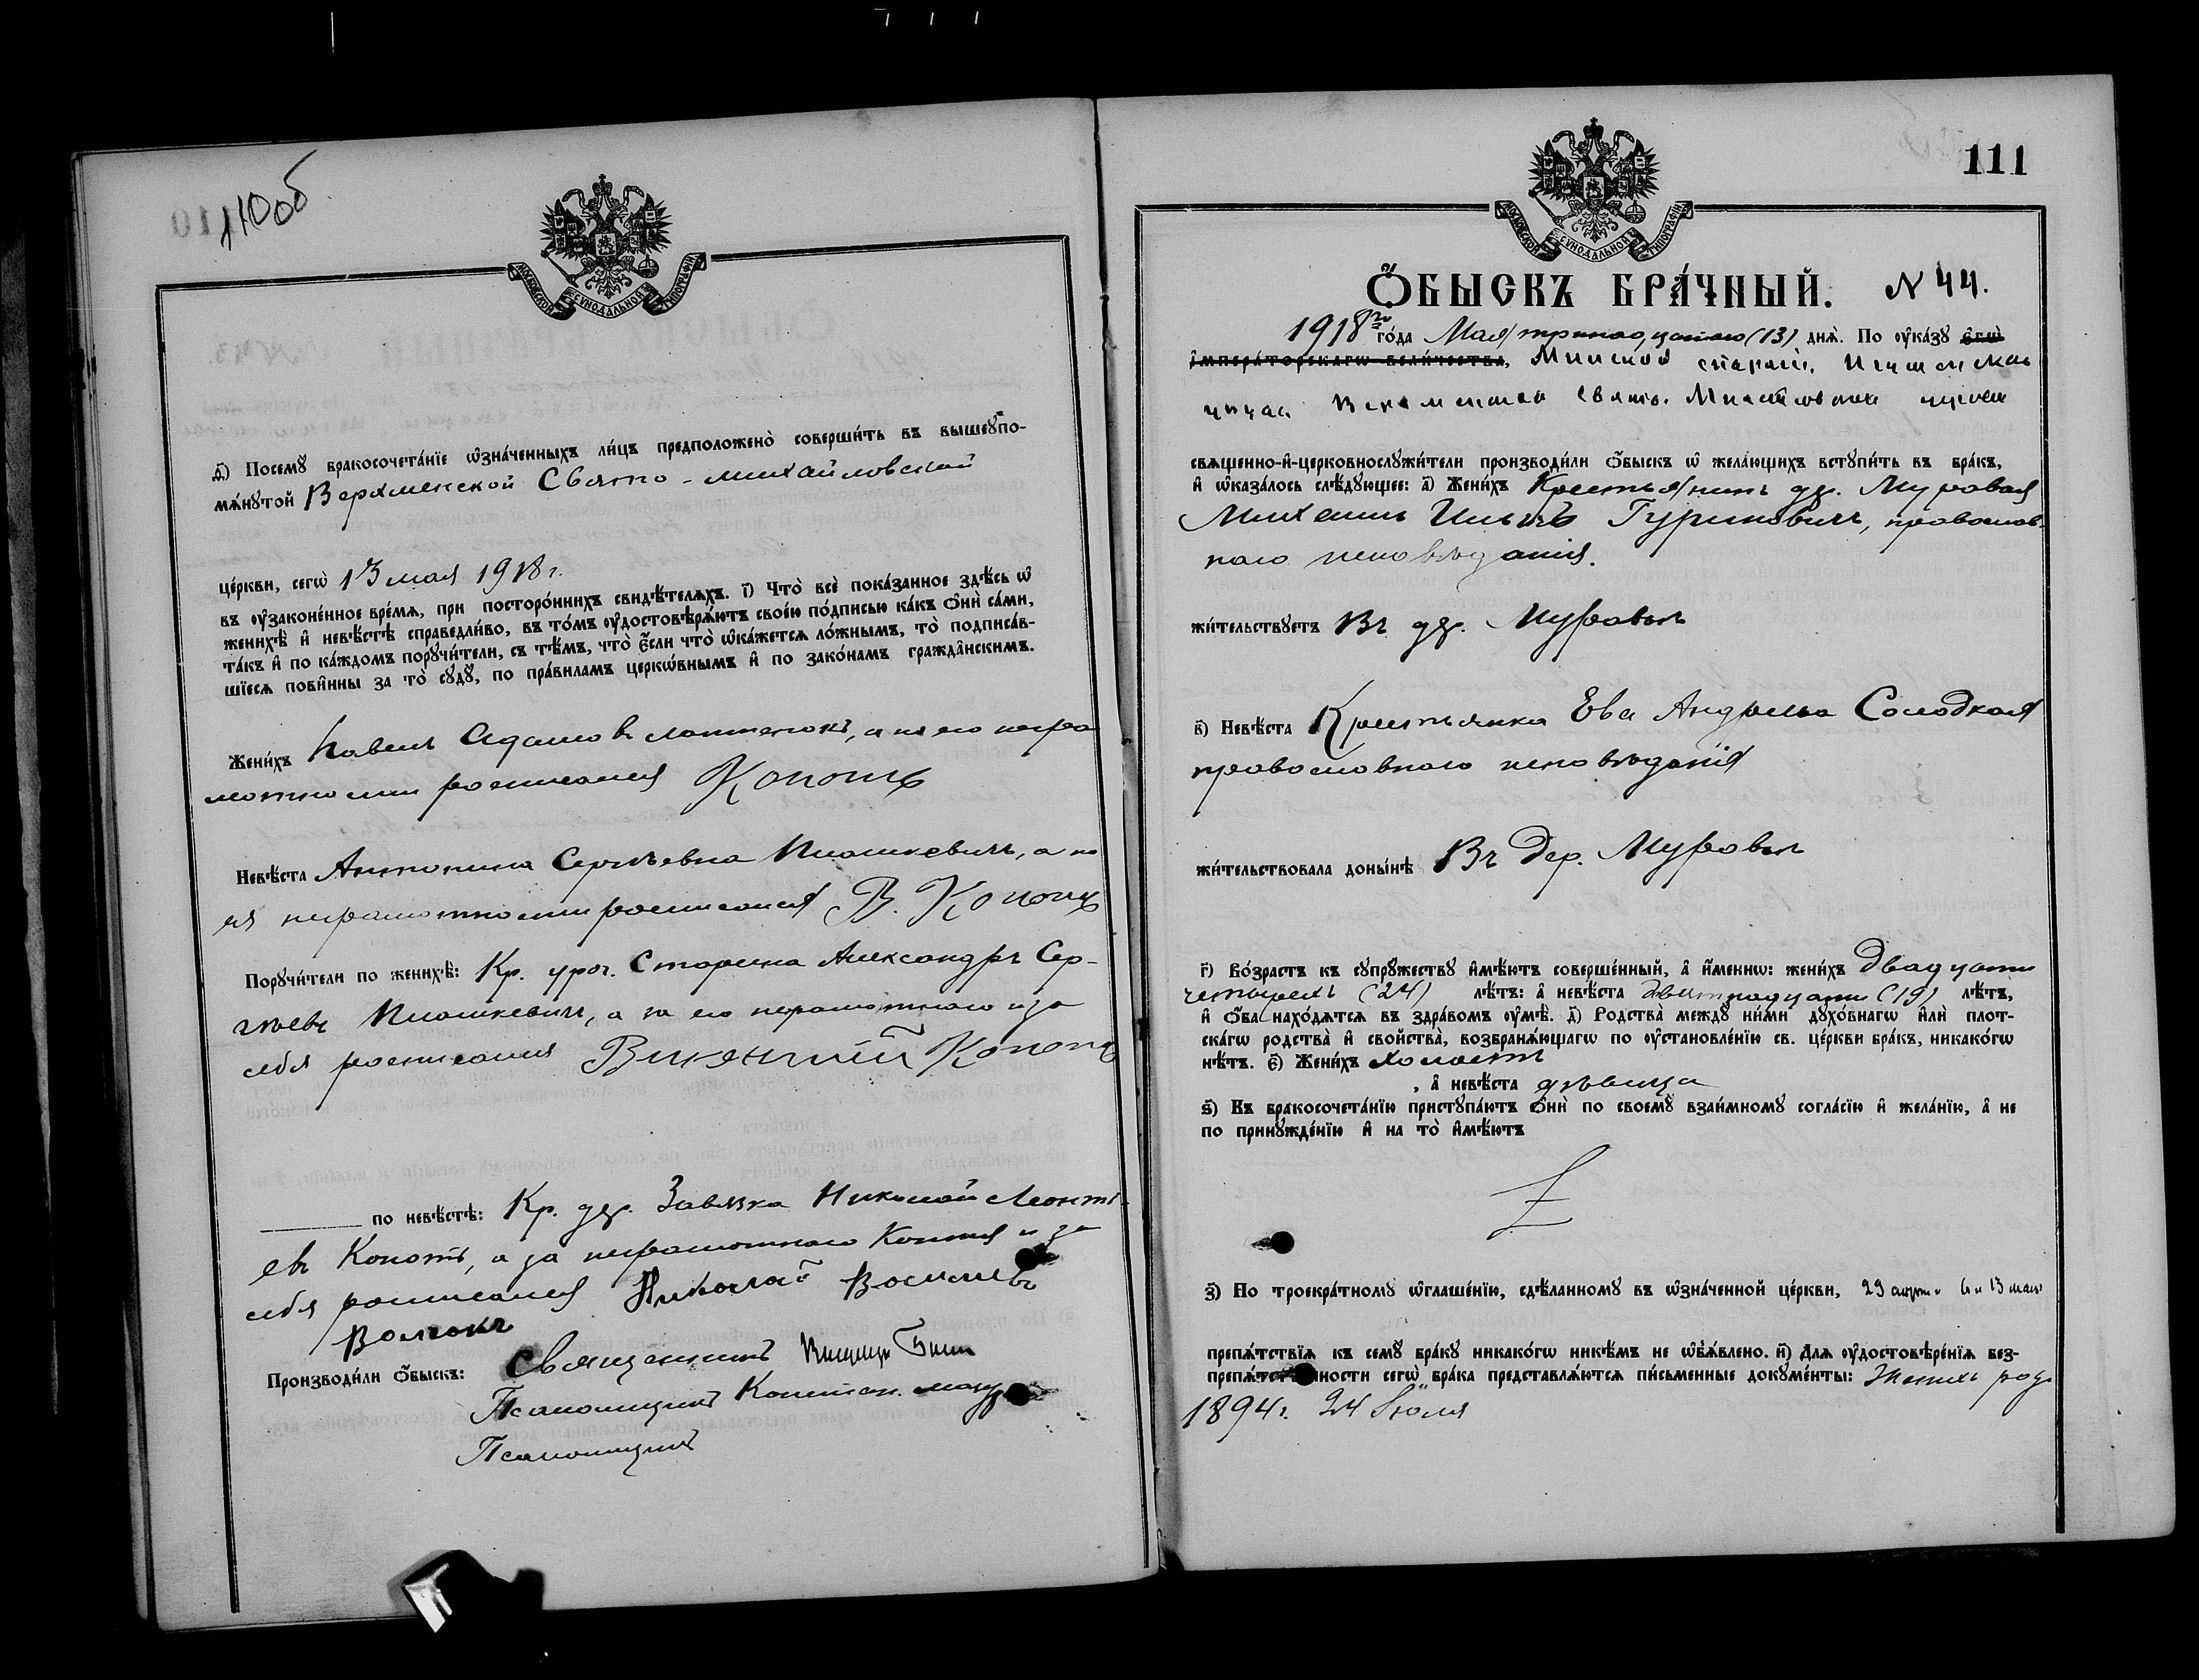 110об
МОСКОВСКОЙ СѴНОДАЛЬНОЙ ТИПОГРАФІИ
д҃) Посемꙋ̀ бракосочета́нїе ѡ҆зна́ченныхъ ли́цъ предположено̀ соверши́ть въ вышеꙋпо-
мѧ́нꙋтой Верхменской Свято-Михайловской
це́ркви, сегѡ̀ 13 мая 1918 г.
въ ᲂу҆зако́ненное вре́мѧ, при посторо́ннихъ свидѣ́телѧхъ. і҃) Что̀ всѐ пока́занное здѣ́сь ѡ҆
женихѣ̀ и҆ невѣ́стѣ справедли́во, въ то́мъ ᲂу҆достовѣрѧ́ютъ свое́ю по́дписью ка́къ ѻ҆нѝ са́ми,
та́къ и҆ по ка́ждомъ порꙋчи́тели, съ тѣ́мъ, что̀ є҆́сли что̀ ѡ҆ка́жетсѧ ло́жнымъ, то̀ подписа́в-
шїесѧ пови́нны за то̀ сꙋдꙋ̀, по пра́виламъ церко́внымъ и҆ по зако́намъ гражда́нскимъ.
Жени́хъ Павелъ Адамовъ а на его негра
мотности росписался Кононъ
Невѣ́ста Антонина Сергѣевна Пиашкевичъ, а по
ея неграмотности росписался В. Кононъ
Порꙋчи́тели по женихѣ̀: Кр. уроч. Старина Александръ Сер-
гѣевъ Пиашкевичъ, а за его неграмотнаго и за
себя росписался Викентій Кононъ
по невѣ́стѣ: Кр. дер. Завязка Николай Леонть-
евъ Кононъ, а за неграмотнаго и за
себя росписался Николай Васильевъ
Волчокъ
Производи́ли ѻ҆́быскъ: Священникъ
Псаломщикъ
Псаломщикъ
111
МОСКОВСКОЙ СѴНОДАЛЬНОЙ ТИПОГРАФІИ
Ѻ҆́БЫСКЪ БРА́ЧНЫЙ. N 44.
1918 го го́да Мая тринадцатаго (13) днѧ̀. По ᲂу҆ка́зꙋ є҆гѡ̀
и҆мпера́торскагѡ вели́чества, Минской епархіи, Игуменскаго
уѣзда Верхменской Свято-Михайловской церкви
свѧще́нно-и҆-церковнослꙋжи́тели производи́ли ѻ҆́быскъ ѡ҆ жела́ющихъ встꙋпи́ть въ бра́къ,
и҆ ѡ҆каза́лось слѣ́дꙋющее: а҃) Жени́хъ Крестьянинъ др. Муровая
Михаилъ Ильичъ Гуриновичъ, православ-
наго исповѣданія.
жи́тельствꙋетъ Въ др. Муровъ
в҃) Невѣ́ста Крестьянка Ева Андреева Солодкая
православнаго исповѣданія
жи́тельствовала доны́нѣ Въ дер. Муровъ
г҃) Во́зрастъ къ сꙋпрꙋ́жествꙋ и҆мѣ́ютъ соверше́нный, а҆ и҆́меннѡ: жени́хъ Двадцати
четырехъ (24) лѣ́тъ: а҆ невѣ́ста девятнадцати (19) лѣ́тъ,
и҆ ѻ҆́ба нахо́дѧтсѧ въ здра́вомъ ᲂу҆мѣ̀. д҃) Родства̀ междꙋ ни́ми дꙋхо́внагѡ и҆лѝ плот-
ска́гѡ родства̀ и҆ свойства̀, возбранѧ́ющагѡ по ᲂу҆становле́нїю св. це́ркви бра́къ, никако́гѡ
нѣ́тъ. є҃) Жени́хъ холостъ
, а҆ невѣ́ста дѣвица
ѕ҃) Къ бракосочета́нїю пристꙋпа́ютъ ѻ҆нѝ по своемꙋ̀ взаи́мномꙋ согла́сїю и҆ жела́нїю, а҆ не
по принꙋжде́нїю и҆ на то̀ и҆мѣ́ютъ
з҃) По троекра́тномꙋ ѡ҆глаше́нїю, сдѣ́ланномꙋ въ ѡ҆зна́ченной це́ркви, 29 апрѣ. 6 и 13 мая
препѧ́тствїѧ къ семꙋ̀ бра́кꙋ никако́гѡ никѣ́мъ не ѡ҆б̾ѧ́влено. и҃) Длѧ ᲂу҆достовѣре́нїѧ без-
препѧ́тственности сегѡ̀ бра́ка представлѧ́ютсѧ пи́сьменные докꙋме́нты: Женихъ род.
1894 г. 24 Іюля